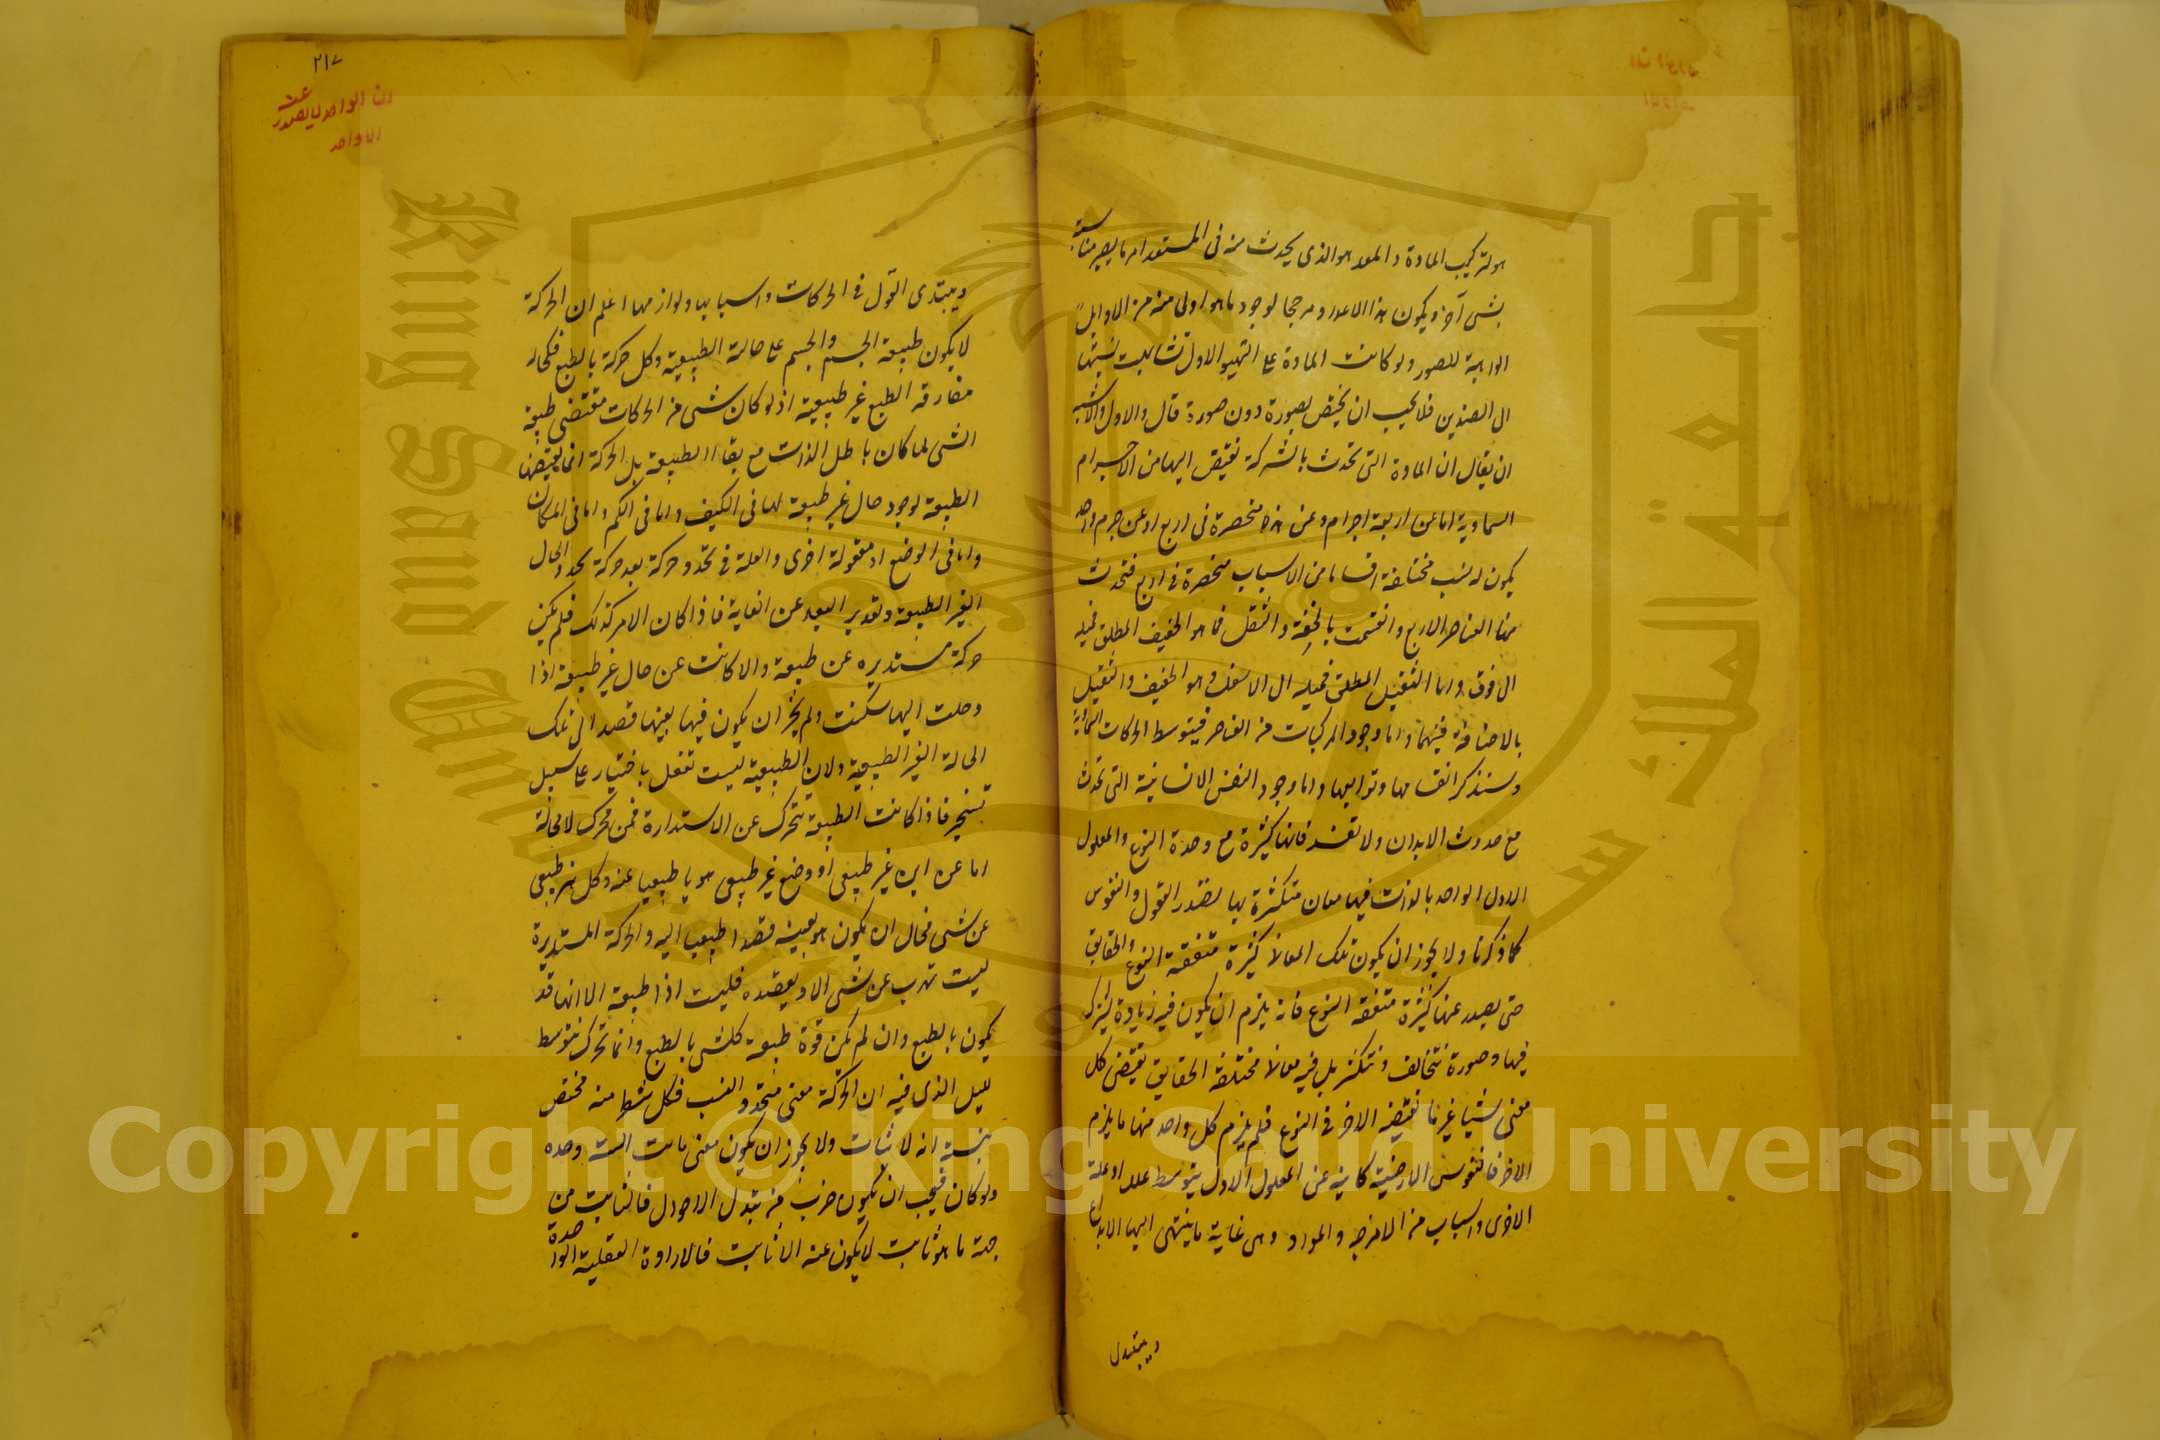 هو تركيب المادة والمعد هو الذي يحدث منه في المستعد امر ما يصير مناسبته
بشى آخر ويكون هذا الاعداد مرجحا لوجود ما هو اولى منه من الاوايل
الواهبة للصور ولو كانت المادة على التهيو الاول تشابهت نسبتها
الى الضدين فلا يجب ان يختص بصورة دون صورة قال والاول والاشبه
ان يقال ان المادة التى تحدث بالشركة تفيض اليها من الاجرام
السماوية اما عن اربعة اجرام وعن عدة منحصرة فى اربع او عن جرم واحد
يكون له نسب مختلفة اقساما من الاسباب منحصرة فى اربع فتحدث
منها العناصر الاربع وانقسمت بالخفة والثقل فما هو الخفيف المطلق فميله
الى فوق واما الثقيل المطلق فميله الى الاسفل وما هو الخفيف والثقيل
بالاضافة فبينهما واما وجود المركبات من العناصر فبتوسط الحركات السماوية
وسنذكر اقسامها وتوابعها واما وجود النفس الانسانية التى تحدث
مع حدوث الابدان ولا تفسد فانها كثيرة مع وحدة النوع والمعلول
الاول الواحد بالذات فيها معان متكثرة بها يصدر العقول والنفوس
كما ذكرنا ولا يجوز ان يكون تلك المعانى كثيرة متفقة النوع والحقايق
حتى يصدر عنها كثيرة متفقة النوع فانه يلزم ان يكون فيه زيادة يشترك
فيها وصورة تتخالف وتتكثر بل فيه معانى مختلفة الحقايق تقتضى كل
معنى شيا غير ما يقتضيه الاخر فى النوع فلم يلزم كل واحد منها ما يلزم
الاخر فالنفوس الارضية كاينة عن المعلول الاول بتوسط علة او علة
الاخرى واسباب من الامزجة والمواد وهى غاية ما ينتهى اليها الابداع
ويبتدى
٢١٧
ان الواحد لا يصدر عنه
الا واحد
ويبتدى القول فى الحركات واسبابها ولوازمها اعلم ان الحركة
لا يكون طبيعة الجسم والجسم على حالته الطبيعية وكل حركة بالطبع فحالة
مفارقة الطبع غير طبيعية اذ لو كان شى من الحركات مقتضى طبيعة
الشى لما كان باطل الذات مع بقاء الطبيعة بل الحركة انما يقتضيها
الطبيعة لوجود حال غير طبيعة اما فى الكيف واما فى الكم واما فى المكان
واما فى الوضع او مقولة اخرى والعلة فى تجدد حركة بعد حركة تجدد الحال
الغير الطبيعة وتقدير البعد عن الغاية فاذا كان الامر كذلك فلم يكن
حركة مستديرة عن طبيعة والا كانت عن حال غير طبيعة اذا
وصلت اليها سكنت ولم يجز ان يكون فيها بعينها قصد الى تلك
الحالة الغير الطبيعية ولان الطبيعية ليست تفعل باختيار على سبيل
تسخير فاذا كانت الطبيعة تتحرك عن الاستدارة فهى تحرك لا محالة
اما عن اين غير طبيعى او وضع غير طبيعى هربا طبيعيا عنه وكل هرب طبيعى
عن شى فمحال ان يكون هو بعينه قصدا طبيعيا اليه والحركة المستديرة
ليست تهرب عن شى الا ويقصده فليست اذا طبيعة الا انها قد
يكون بالطبع وان لم يكن قوة طبيعة كشى بالطبع وانما تحرك بتوسط
الميل الذى فيه ان الحركة معنى متجدد النسب فكل شطر منه مختص
بنسبة انه لا ثبات ولا يجوز ان يكون معنى ثابت البتة وحده
ولو كان فيجب ان يكون ضرب من تبدل الاحوال فالثابت من
جهة ما هو ثابت لا يكون عنه الا ثابت فالارادة العقلية الواحدة
Copyright © King Saud University
King Saud University
جامعة الملك سعود